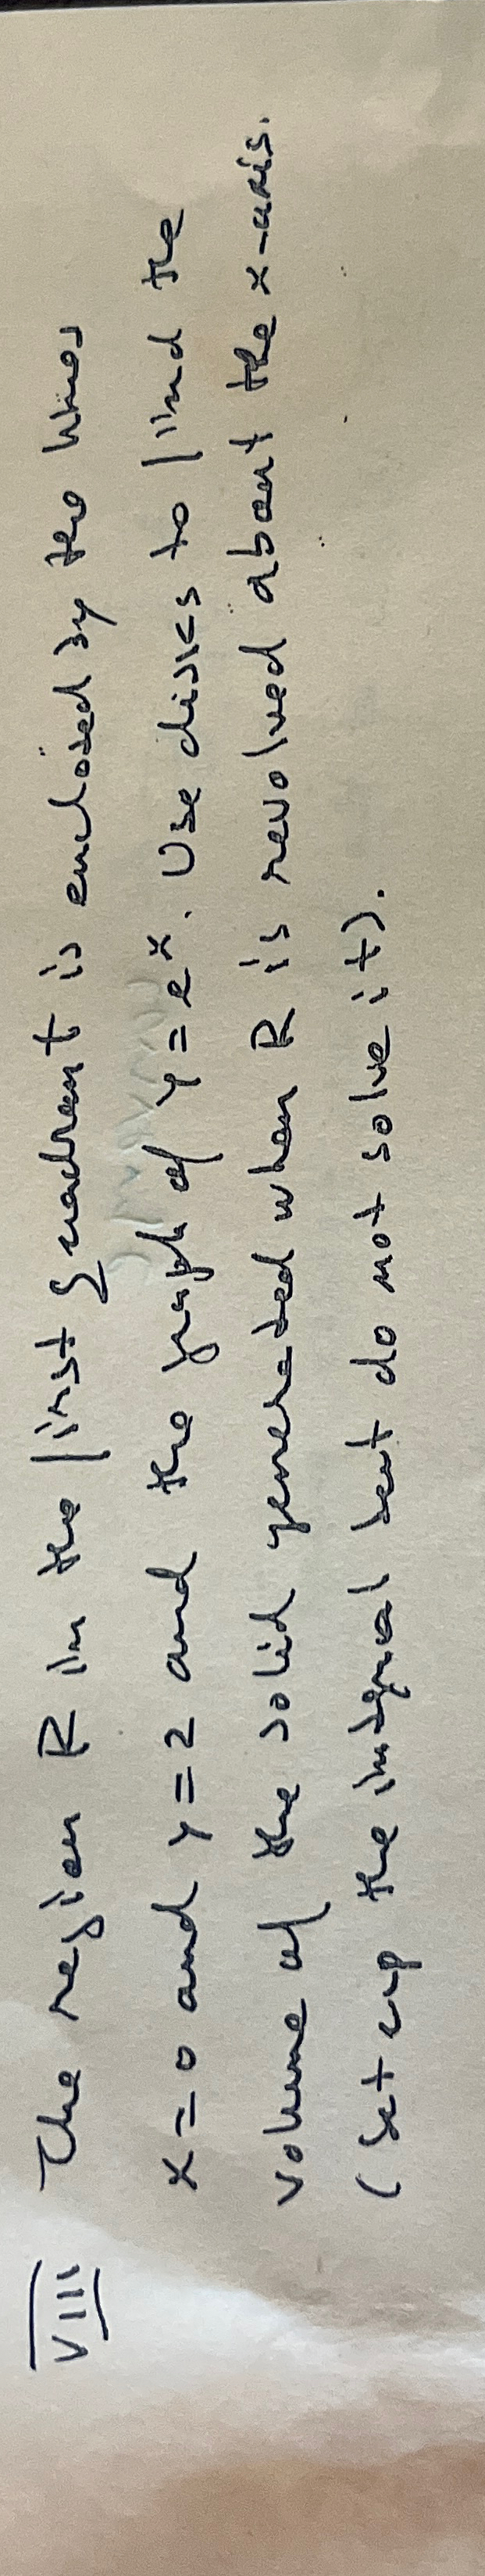 VIII The region R in the first quadrant is enclosed by the lines
x=0 and y=2 and the graph of y=e^x. Use disks to find the
volume of the solid generated when R is revolved about the x-axis.
(Set up the integral but do not solve it).